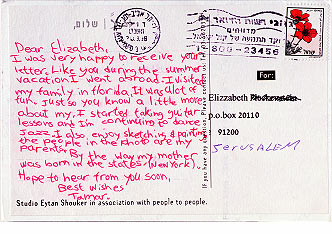 שלום,
Dear Elizabeth,
I was very happy to receive your
letter. Like you during the summer
vacation I went abroad. I visited
my family in florida. It was alot of
fun. Just so you know a little more
about my, I started taking guitar
lessons and Im continuing to dance
Jazz. I also enjoy sketching & painting
the people in the photo are my
parents.
By the way my mother
was born in the states (New York).
Hope to hear from you soon,
Best wishes
Tamar.
Studio Eytan Shouker in association with people to people.
If you have any question, Please contact
רשות הדואר
של
800-23456
For:
Elizzabeth
p.o.box 20110
91200
JERUSALEM